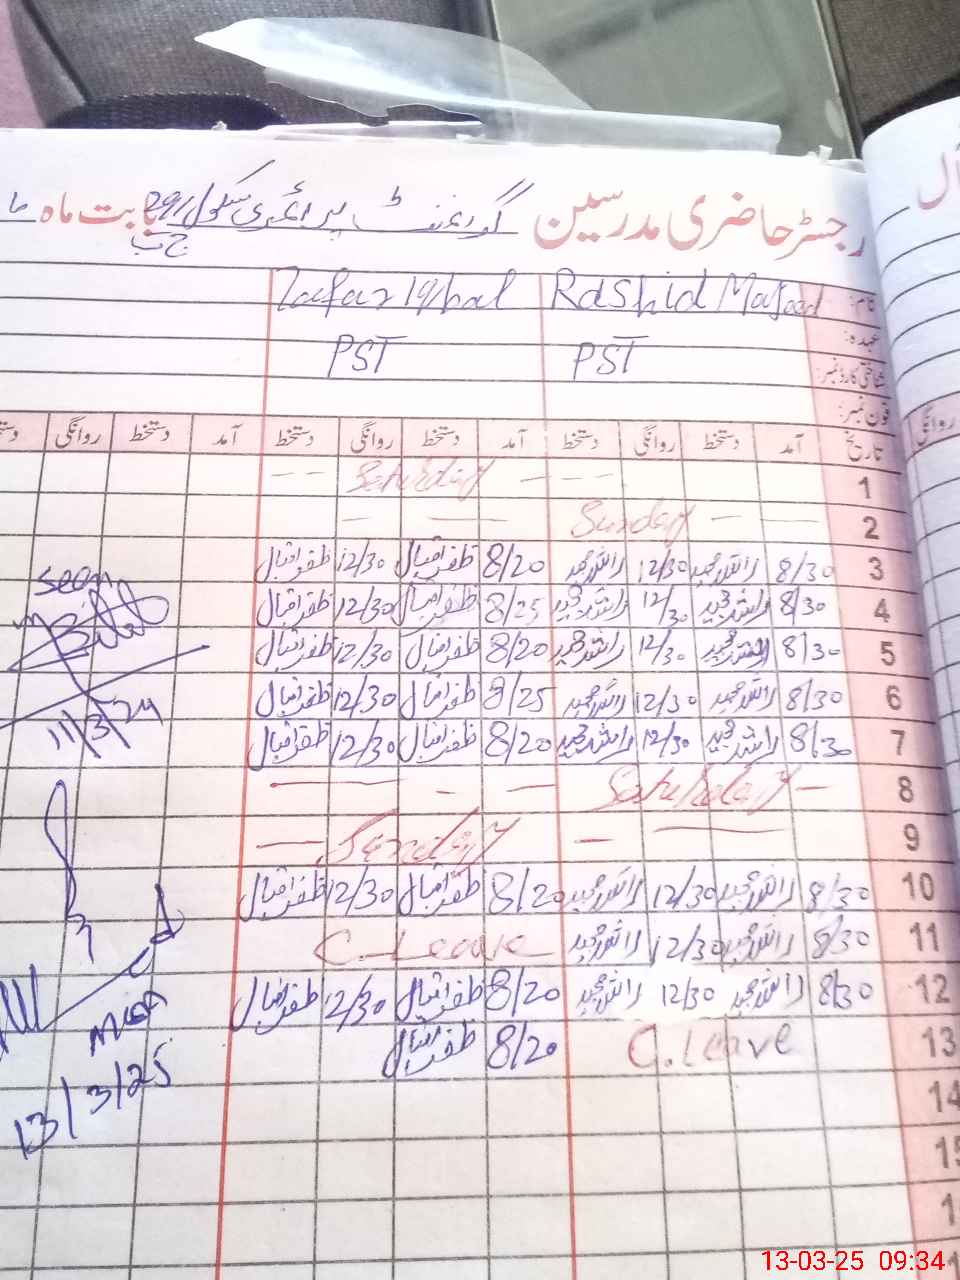 رجسٹر حاضری مدرسین گورنمنٹ پرائمری سکول 291 بابت ماہ
ج ب
نام: Rashid Majeed Zafar Iqbal
عہدہ: PST PST
شناختی کارڈ نمبر:
فون نمبر:
تاریخ آمد دستخط روانگی دستخط آمد دستخط روانگی دستخط آمد دستخط روانگی
1 Saturday
2 Sunday
3 8/30 راشد مجید 12/30 راشد مجید 8/20 ظفر اقبال 12/30 ظفر اقبال
4 8/30 راشد مجید 12/30 راشد مجید 8/25 ظفر اقبال 12/30 ظفر اقبال
5 8/30 راشد مجید 12/30 راشد مجید 8/20 ظفر اقبال 12/30 ظفر اقبال
6 8/30 راشد مجید 12/30 راشد مجید 8/25 ظفر اقبال 12/30 ظفر اقبال
7 8/30 راشد مجید 12/30 راشد مجید 8/20 ظفر اقبال 12/30 ظفر اقبال
8 Saturday
9 Sunday
10 8/30 راشد مجید 12/30 راشد مجید 8/20 ظفر اقبال 12/30 ظفر اقبال
11 8/30 راشد مجید 12/30 راشد مجید C. Leave
12 8/30 راشد مجید 12/30 راشد مجید 8/20 ظفر اقبال 12/30 ظفر اقبال
13 C. Leave 8/20 ظفر اقبال
14
15
seen
11/3/24
13/3/25
روانگی
13-03-25 09:34